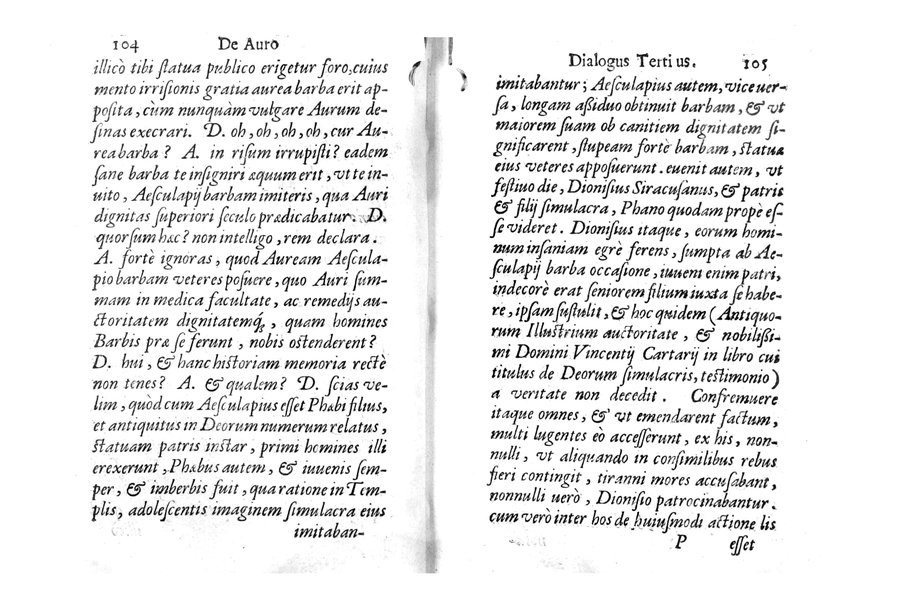 104 De Auro
illicò tibi ſtatua publico erigetur foro, cuius
mento irriſionis gratia aurea barba erit ap-
poſita, cùm nunquàm vulgare Aurum de-
ſinas execrari. D. oh, oh, oh, oh, cur Au-
rea barba? A. in riſum irrupiſti? eadem
ſane barba te inſigniri æquum erit, vt te in-
uito, Aeſculapij barbam imiteris, qua Auri
dignitas ſuperiori ſeculo prædicabatur. D.
quorſum hæc? non intelligo, rem declara.
A. fortè ignoras, quod Auream Aeſcula-
pio barbam veteres poſuere, quo Auri ſum-
mam in medica facultate, ac remedijs au-
ctoritatem dignitatemq́;, quam homines
Barbis præ ſe ferunt, nobis oſtenderent?
D. hui, & hanc hiſtoriam memoria rectè
non tenes? A. & qualem? D. ſcias ve-
lim, quòd cum Aeſculapius eſſet Phœbi filius,
et antiquitus in Deorum numerum relatus,
ſtatuam patris inſtar, primi homines illi
erexerunt, Phœbus autem, & iuuenis ſem-
per, & imberbis fuit, qua ratione in Tem-
plis, adoleſcentis imaginem ſimulacra eius
imitaban-
Dialogus Tertius. 105
imitabantur; Aeſculapius autem, vice uer-
ſa, longam aſſiduo obtinuit barbam, & vt
maiorem ſuam ob canitiem dignitatem ſi-
gnificarent, ſtupeam fortè barbam, ſtatuæ
eius veteres appoſuerunt. euenit autem, vt
feſtiuo die, Dioniſius Siracuſanus, & patris
& filij ſimulacra, Phano quodam propè eſ-
ſe videret. Dioniſius itaque, eorum homi-
num inſaniam egrè ferens, ſumpta ab Ae-
ſculapij barba occaſione, iuueni enim patri,
indecorè erat ſeniorem filium iuxta ſe habe-
re, ipſam ſuſtulit, & hoc quidem (Antiquo-
rum Illuſtrium auctoritate, & nobiliſſi-
mi Domini Vincentij Cartarij in libro cui
titulus de Deorum ſimulacris, teſtimonio)
a veritate non decedit. Confremuere
itaque omnes, & vt emendarent factum,
multi lugentes eò acceſſerunt, ex his, non-
nulli, vt aliquando in conſimilibus rebus
fieri contingit, tiranni mores accuſabant,
nonnulli uerò, Dioniſio patrocinabantur.
cum verò inter hos de huiuſmodi actione lis
P eſſet